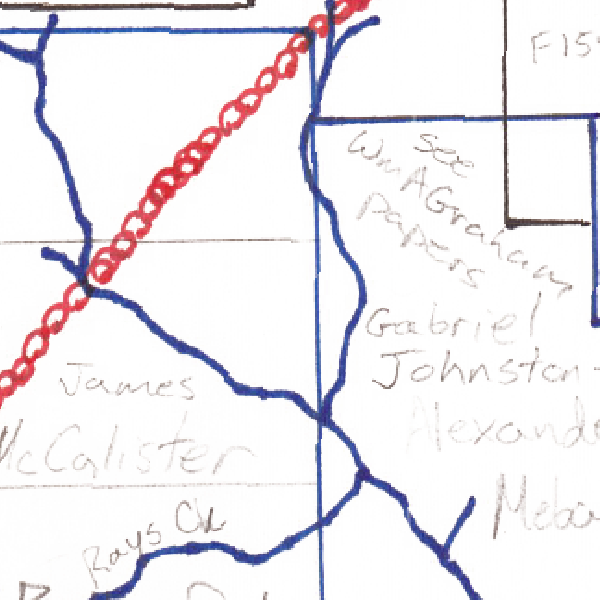 F15
see
Wm A Graham
papers
Gabriel
Johnston-
James
McCalister
Rays Ck